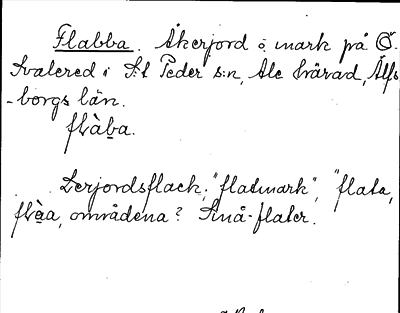 Flabba. Åkerjord o mark på Ö.
Svalered i S:t Peder s:n, Ale härad, Älfs
-borgs län.
flàba.
Lerjordsflack, "flatmark", "flata,
flàa, områdena? Små-flater.